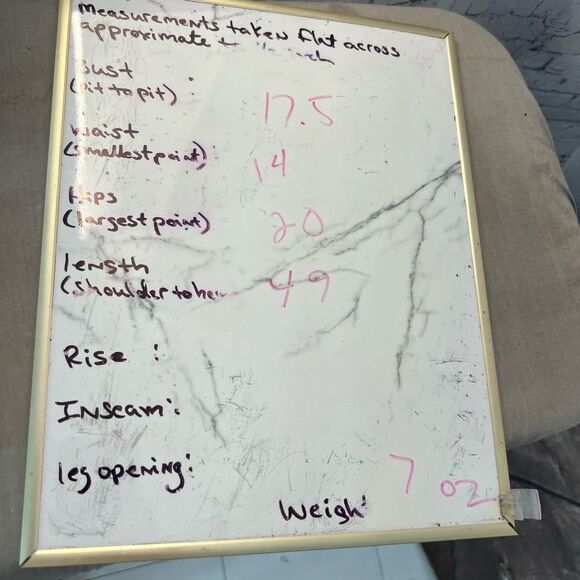 measurements taken flat across
approximate
Bust
(pit to pit): 17.5
waist
(smallest point) 14
Hips
(largest point) 20
length
(shoulder to hem 49
Rise :
Inseam:
leg opening:
7 oz
Weigh: